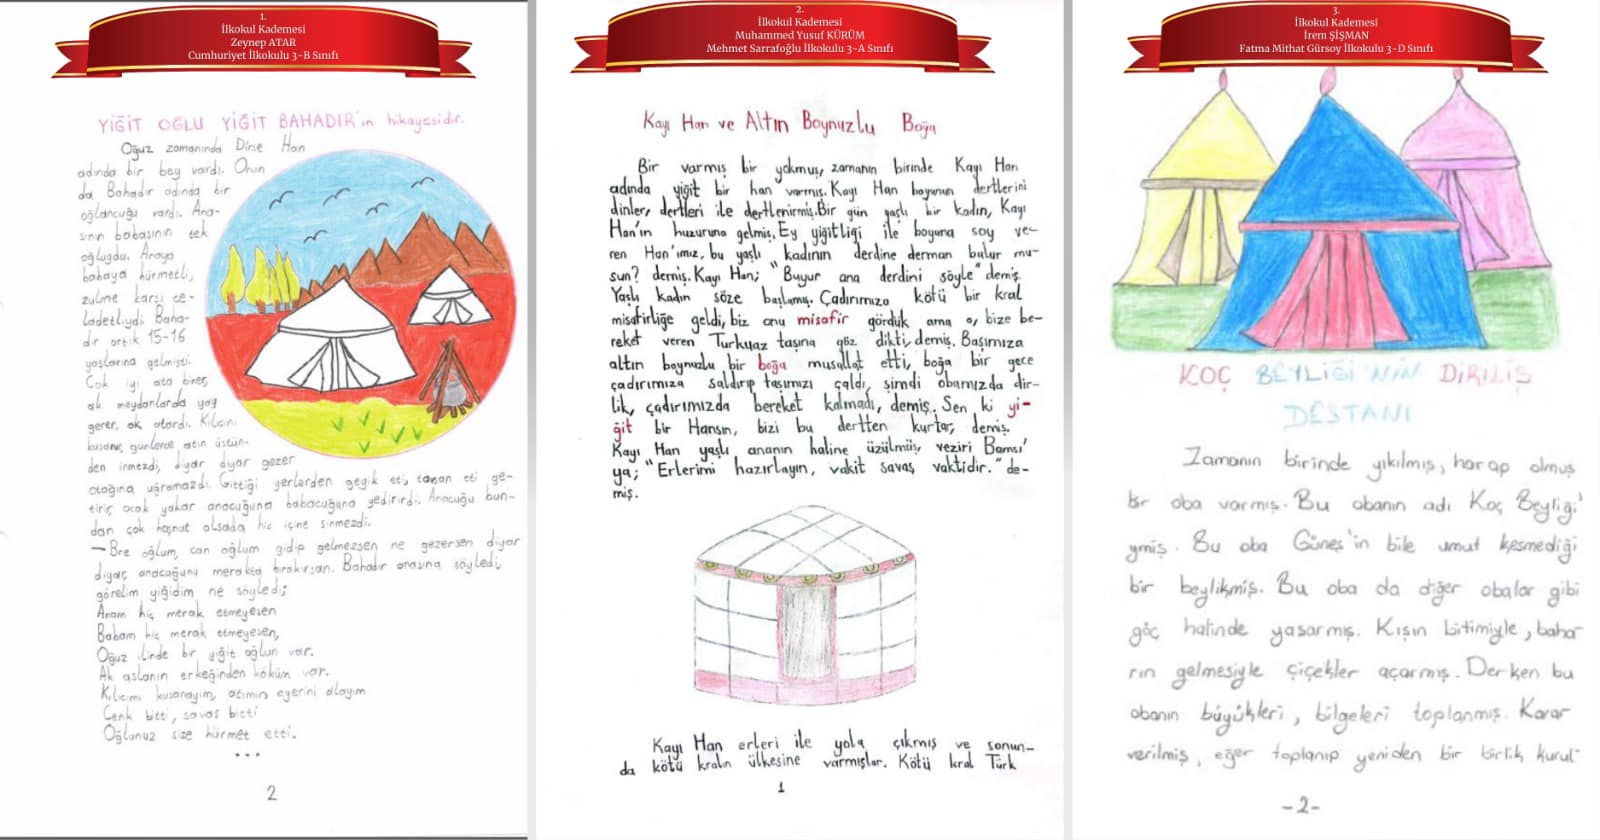 1.
İlkokul Kademesi
Zeynep ATAR
Cumhuriyet İlkokulu 3-B Sınıfı
YİĞİT OĞLU YİĞİT BAHADIR'ın hikayesidir.
Oğuz zamanında Dirse Han
adında bir bey vardı. Onun
da Bahadır adında bir
oğlancuğu vardı. Ana-
sının babasının tek
oğluydu. Anaya
babaya hürmetli,
zulme karşı ce-
ladetliydi Baha-
dır artık 15-16
yaşlarına gelmişti.
Çok iyi ata biner,
ok meydanlarda yay
gerer, ok atardı. Kılıcını
kuşanır, günlerce atın üstün-
den inmezdi, diyar diyar gezer
otağına uğramazdı. Gittiği yerlerden geyik eti, tavşan eti ge-
tirir, ocak yakar anacuğuna babacuğuna yedirirdi. Anacuğu bun-
dan çok hoşnut olsada hiç içine sinmezdi.
—Bre oğlum, can oğlum gidip gelmezsen ne gezersen diyar
diyar, anacuğunu merakta bırakırsan. Bahadır anasına söyledi,
görelim yiğidim ne söyledi;
Anam hiç merak etmeyesen
Babam hiç merak etmeyesen,
Oğuz ilinde bir yiğit oğlun var.
Ak aslanın erkeğinden köküm var.
Kılıcımı kuşanayım, atımın eyerini alayım
Cenk bitti, savaş bitti
Oğlunuz size hürmet etti.
...
2
2.
İlkokul Kademesi
Muhammed Yusuf KÜRÜM
Mehmet Sarrafoğlu İlkokulu 3-A Sınıfı
Kayı Han ve Altın Boynuzlu Boğa
Bir varmış bir yokmuş, zamanın birinde Kayı Han
adında yiğit bir han varmış. Kayı Han boyunun dertlerini
dinler, dertleri ile dertlenirmiş. Bir gün yaşlı bir kadın, Kayı
Han'ın huzuruna gelmiş. Ey yiğitliği ile boyuna soy ve-
ren Han'ımız, bu yaşlı kadının derdine derman bulur mu-
sun? demiş. Kayı Han; "Buyur ana derdini söyle" demiş
Yaşlı kadın söze başlamış. Çadırımıza kötü bir kral
misafirliğe geldi, biz onu misafir gördük ama o, bize be-
reket veren Turkuaz taşına göz dikti, demiş. Başımıza
altın boynuzlu bir boğa musallat etti, boğa bir gece
çadırımıza saldırıp taşımızı çaldı, şimdi obamızda dir-
lik, çadırımızda bereket kalmadı, demiş. Sen ki yi-
ğit bir Hansın, bizi bu dertten kurtar, demiş.
Kayı Han yaşlı ananın haline üzülmüş, veziri Bamsı'
ya; "Erlerimi hazırlayın, vakit savaş vaktidir." de-
miş.
Kayı Han erleri ile yola çıkmış ve sonun-
da kötü kralın ülkesine varmışlar. Kötü kral Türk
1
3.
İlkokul Kademesi
İrem ŞİŞMAN
Fatma Mithat Gürsoy İlkokulu 3-D Sınıfı
KOÇ BEYLİĞİ'NİN DİRİLİŞ
DESTANI
Zamanın birinde yıkılmış, harap olmuş
bir oba varmış. Bu obanın adı Koç Beyliği'
ymiş. Bu oba Güneş'in bile umut kesmediği
bir beylikmiş. Bu oba da diğer obalar gibi
göç halinde yaşarmış. Kışın bitimiyle, baha-
rın gelmesiyle çiçekler açarmış. Derken bu
obanın büyükleri, bilgeleri toplanmış. Karar
verilmiş, eğer toplanıp yeniden bir birlik kurul-
-2-